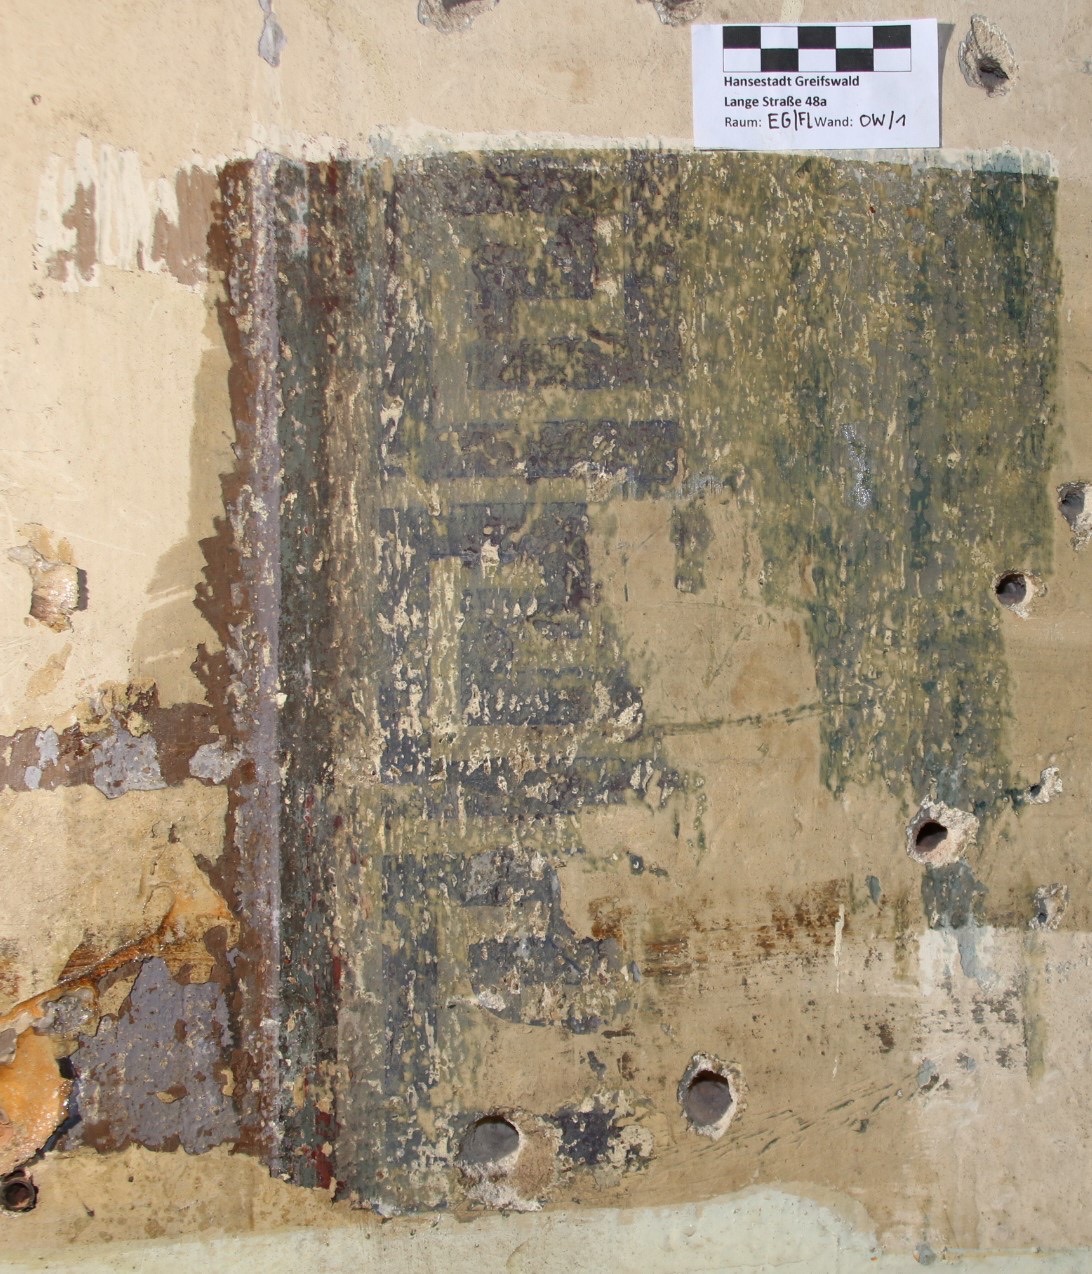 Hansestadt Greifswald
Lange Straße 48a
Raum: EG/FL Wand: OW/1